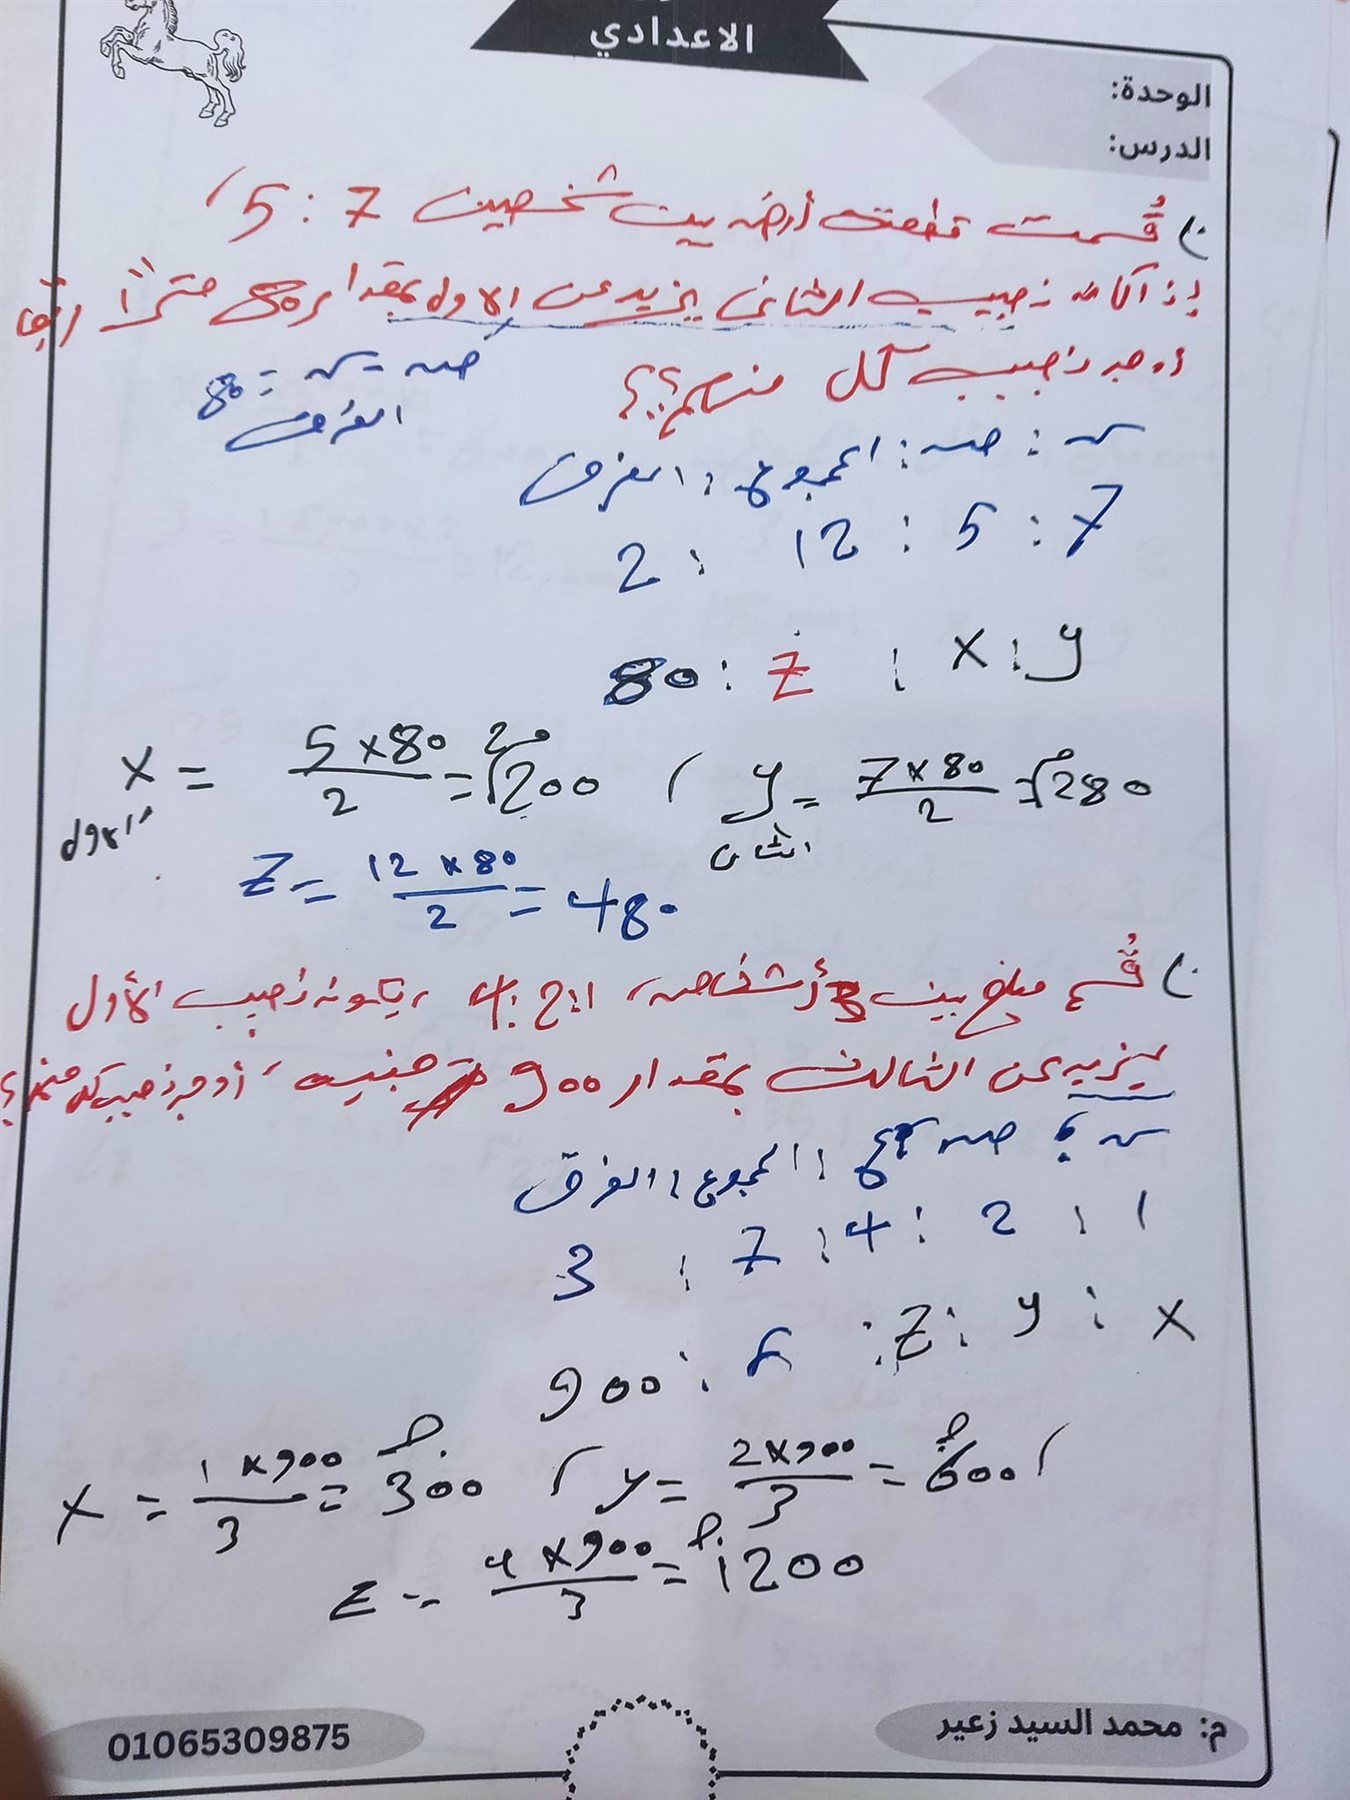 الاعدادي
الوحدة:
الدرس:
قُسمت قطعة أرض بين شخصين 7 : 5 ،
إذا كان نصيب الثاني يزيد عن الاول بمقدار 80 متراً
أوجد نصيب كل منهم؟؟
صـ - سـ = 80
الفرق
سـ : صـ : المجموع : الفرق
7 : 5 : 12 : 2
y : x : z : 80
x = 5 × 80 / 2 = 200 ، y = 7 × 80 / 2 = 280
الاول
الثاني
z = 12 × 80 / 2 = 480
قُسم مبلغ بين 3 أشخاص، 1 : 2 : 4 ، نصيب الأول
يزيد عن الثالث بمقدار 900 جنيه ، أوجد نصيب كل منهم؟
سـ : صـ : ع : المجموع : الفرق
1 : 2 : 4 : 7 : 3
x : y : z : : 900
x = 1 × 900 / 3 = 300 ، y = 2 × 900 / 3 = 600 ،
z = 4 × 900 / 3 = 1200
م: محمد السيد زعير
01065309875